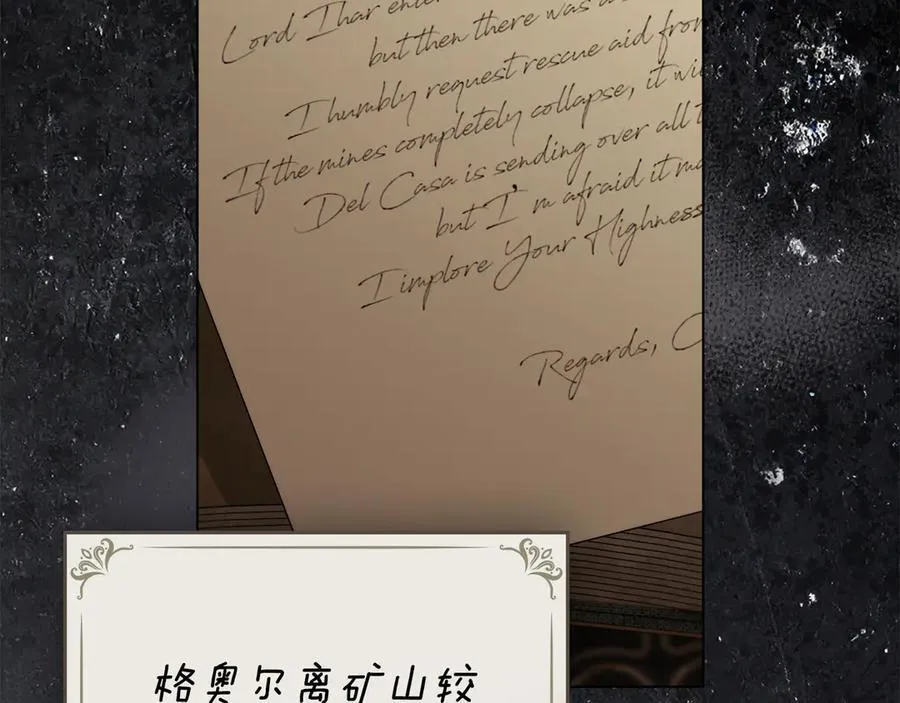 Lord Ihar ente
but then there was a
I humbly request rescue aid from
If the mines completely collapse, it wi
Del Casa is sending over all t
but I'm afraid it ma
I implore Your Highness
Regards, C
格奥尔离矿山较